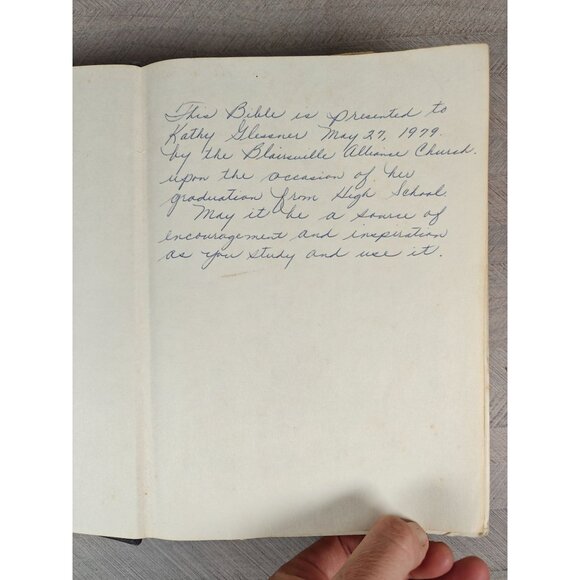 This Bible is presented to
Kathy Glessner May 27, 1979.
by the Blairsville Alliance Church.
upon the occasion of her
graduation from High School
May it be a source of
encouragement and inspiration
as you study and use it.